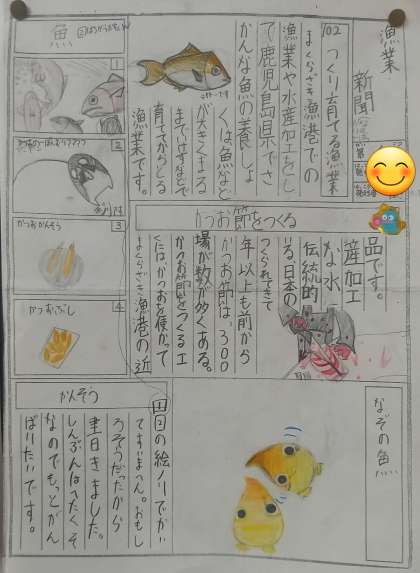 漁業
新聞
102 つくり育てる漁業
まくらざき漁港での
漁業や水産加工をし
て鹿児島県でさ
かんな魚の養しょ
くは魚など
が大きくなる
までいけすなどで
育ててからとる
漁業です。
魚
1
2
3
かつおかんそう
4
かつおぶし
かつお節をつくる
まくらざき漁港の近
くには、かつおを使がって
かつお節をつくる工
場が数が多くある。
かつお節は、300
年以上も前から
つくられてきて
いる、日本の
伝統的
な水
産加工
品です。
なぞの魚
かんそう
の絵ノリでかい
てすいません。おもし
ろそうだったから
書きました。
しんぶんはへたくそ
なのでもっとがん
ばりたいです。